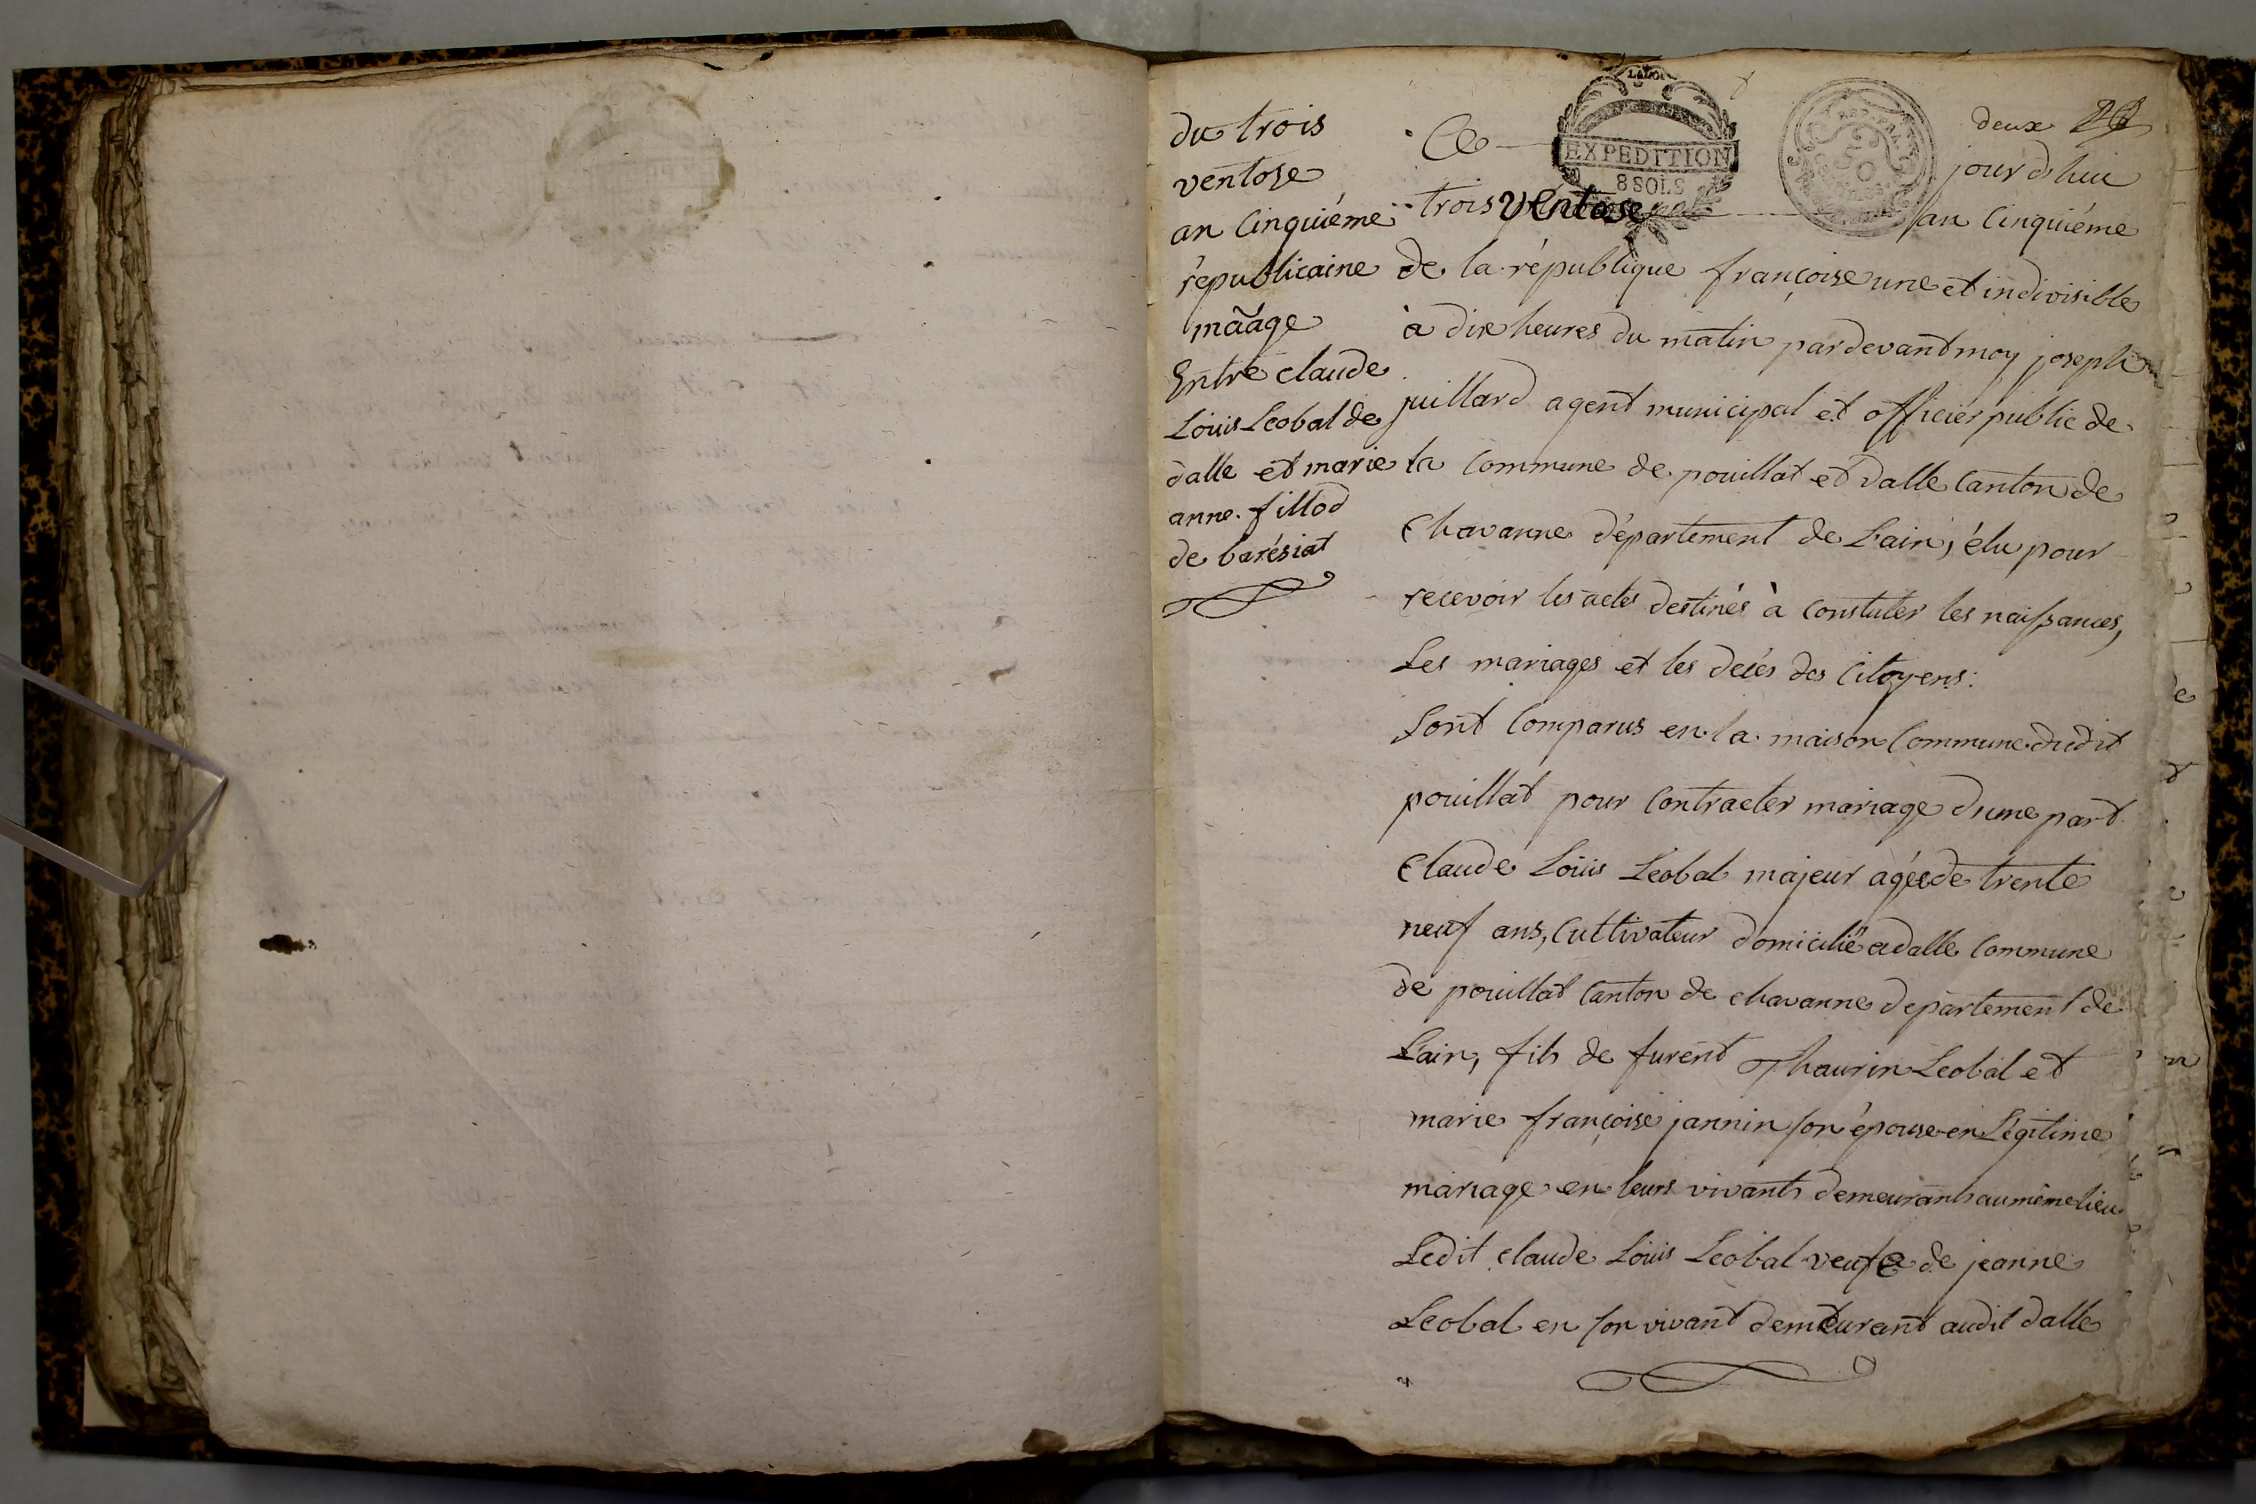 du trois
ventose
an cinquiéme
républicaine
mãage
Entre claude
Loüis Leobal de
dalle et marie
anne fillod
de barésiat
deux
LALOI
EXPEDITION
8 SOLS
REP. FRA
50
Ce jourd'huu
trois ventose an cinquiéme
de la république françoise une et indivisible
à dix heures du matin pardevant moy joseph
juillard agent municipal et officier public de
la commune de pouillat et dalle canton de
chavanne département de L'ain, élu pour
recevoir les actes destinés à constater les naissances,
Les mariages et les decés des citoyens:
Sont comparus en la maison commune dudit
pouillat pour contracter mariage d'une part
claude Loüis Léobal majeur agée de trente
neuf ans, cultivateur domicilié a dalle commune
de pouillat canton de chavanne departement de
L'ain, fils de furent Thaurin Leobal et
marie françoise jannin son épouse en Légitime
mariage en leurs vivants demeurants au même lieu
Ledit claude Loüis Leobal veufe de jeanne
Leobal en son vivant demeurant audit dalle